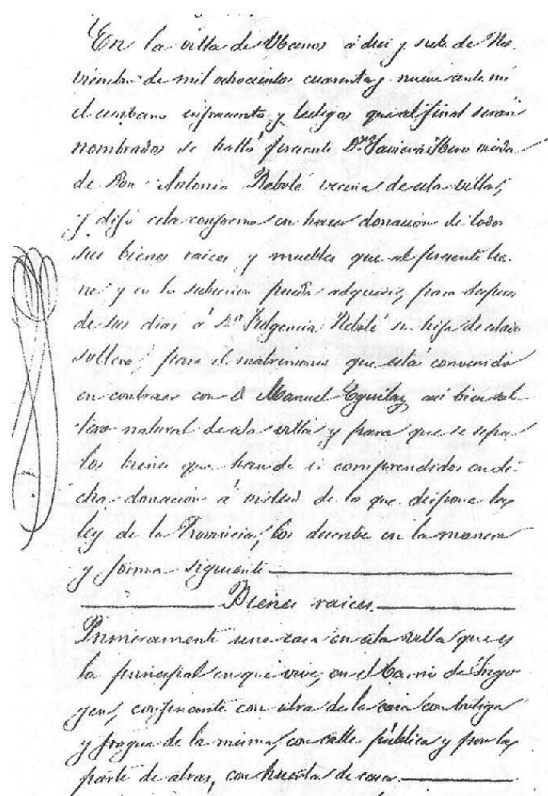 En la villa de Obanos á diez y siete de No
viembre de mil ochocientos cuarenta y nueve ante mi
el escribano infrascrito y testigos que al final serán
nombrados se halló presente D.ª Javiera Ibero viuda
de Don Antonio Rebolé vecina de esta villa,
y dijo esta conforme en hacer donación de todos
sus bienes raices y muebles que al presente tie-
ne y en lo subcesivo pueda adquirir, para despues
de sus dias á D.ª Fulgencia Rebolé su hija de estado
soltera, para el matrimonio que está convenido
en contraer con D. Manuel Eguilaz asi bien sol
tero natural de esta villa, y para que se sepan
los bienes que han de ir comprendidos en di
cha donación á virtud de lo que dispone la
ley de la Provincia, los describe en la manera
y forma siguiente
Bienes raices
Primeramente una casa en esta villa que es
la principal en que vive, en el barrio de
confrontante con otra de la casa con botiga
y fragua de la misma, con calle pública y por la
parte de atras, con huerta de casa.